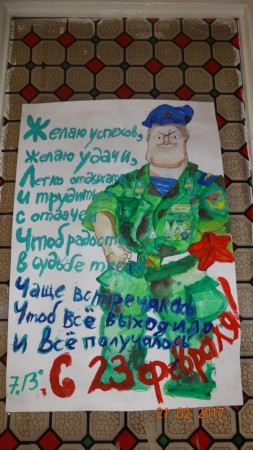 Желаю успехов,
желаю удачи,
Легко отдыхать
и трудиться
с отдачей
Чтоб радость
в судьбе
Чаще встречалась
Чтоб всё выходило
и всё получалось
С 23 февраля!
7.13.
21 02 2017